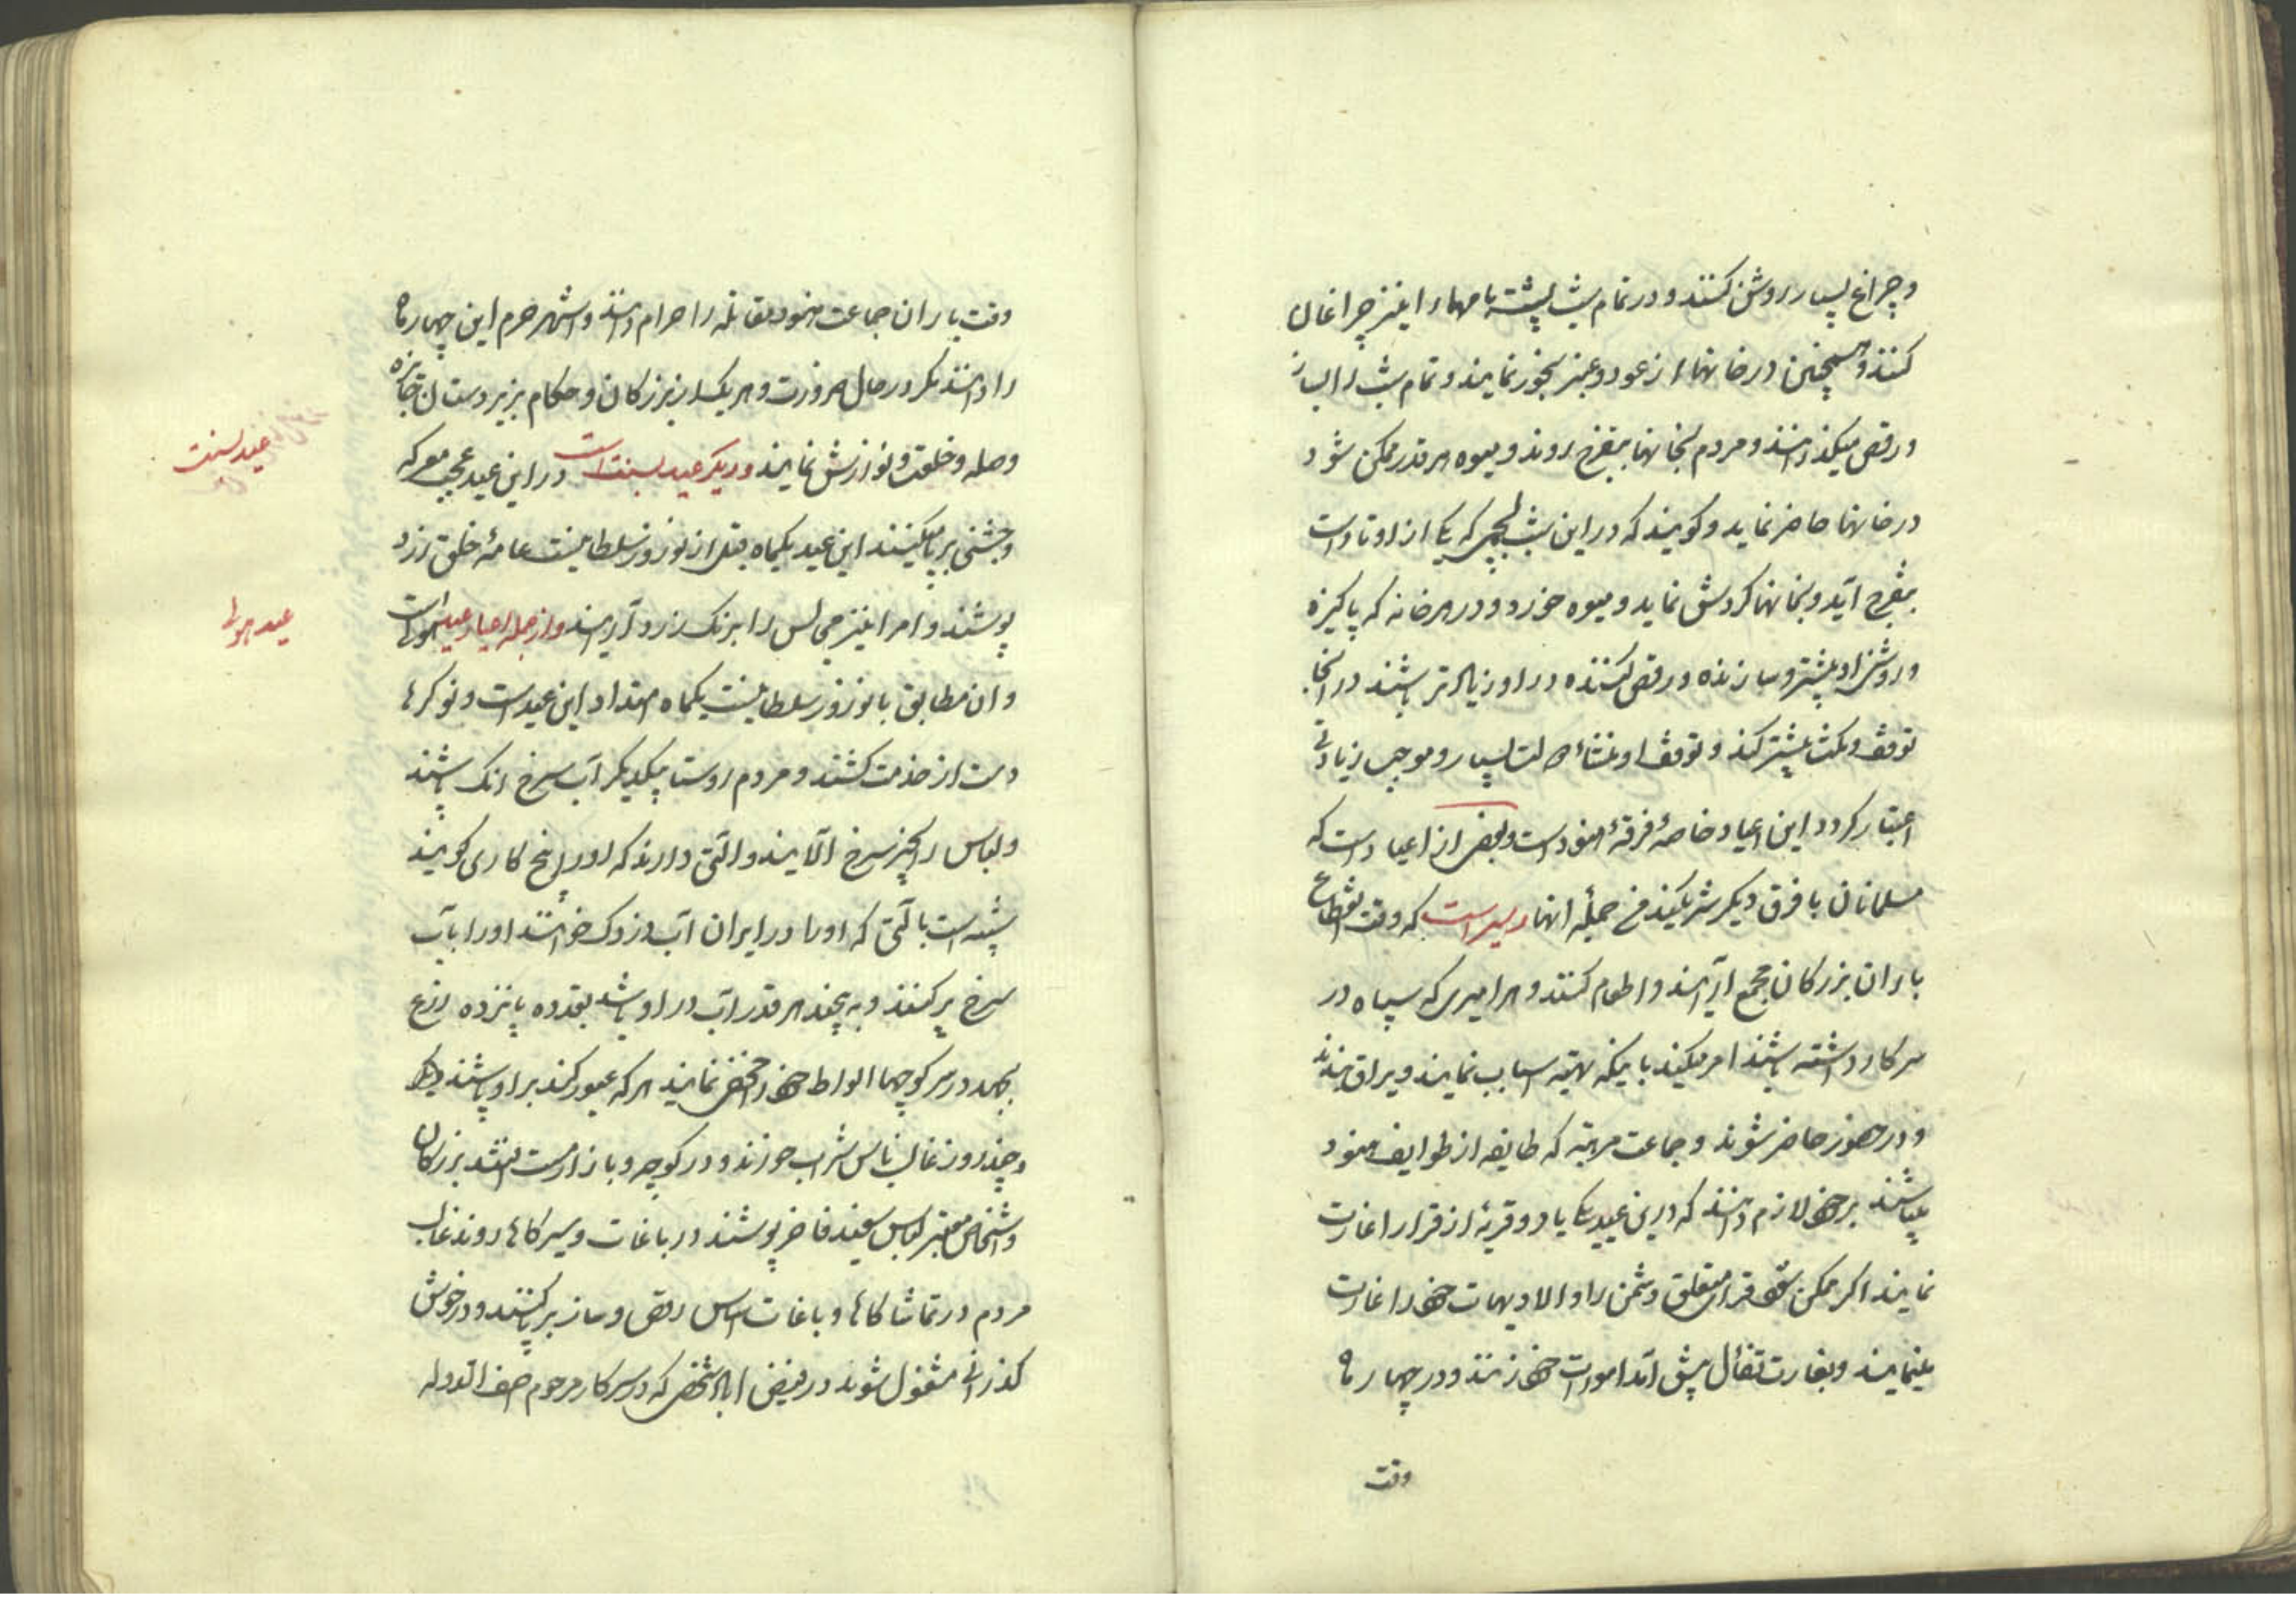 و چراغ بسیار روشن کنند و در تمام شب پشته بامها را نیز چراغان
کنند و همچنین در خانها از عود و عنبر بخور نمایند و تمام شب را بساز
و رقص میگذرانند و مردم بخانها بتفرج روند و میوه هر قدر ممکن شود
در خانها حاضر نماید و گویند که در این شب لچمی که یکی از اوتار است
بتفرج آید و بخانها گردش نماید و میوه خورد و در هر خانه که پاکیزه
و روشنی او بیشتر و سازنده و رقص کننده در او زیادتر باشند در انجا
توقف و مکث بیشتر کند و توقف او منشاء دولت بسیار و موجب زیادتی
اعتبار کردد این اعیاد خاصهٔ فرقهٔ هنود است و بعضی از اعیاد است که
مسلمانان با فرق دیکر شریکند من جملهٔ انها دسیره است که وقت انقطاع
باران بزرکان مجمع آرایند و اطعام کنند و هر امیری که سپاه در
سرکار داشته باشند امر میکند باینکه تهیه اسباب نمایند و یراق بندند
و در حضور حاضر شوند و جماعت مرهته که طایفه از طوایف هنود
میباشند بر خود لازم دانند که درین عید یک یا دو قریهٔ از قرار را غارت
نمایند اکر ممکن شود قرای متعلق دشمن را و الا دیهات خود را غارت
مینمایند و بغارت تفأل پیش آمد امورات خود زنند و در چهار ماه
وقت
وقت باران جماعت هنود مقاتله را حرام دانند و اشهر حرم این چهار ماه
را دانند مکر در حال ضرورت و هر یک از بزرکان و حکام بزیردستان جایزه
و صله و خلعت و نوازش نمایند و دیکر عید بسنت است در این عید عجب معرکه
و جشنی برپا میکنند این عید یکماه قبل از نوروز سلطانیست عامهٔ خلق زرد
پوشند و امرا نیز مجالس را برنک زرد آرایند و از جمله اعیاد عید هولی است
و ان مطابق با نوروز سلطانیست یکماه امتداد این عید است و نوکرها
دست از خدمت کشند و مردم روستا بیکدیکر آب سرخ رنک پاشند
و لباس را بچیز سرخ آلایند و التی دارند که او را پچ کاری کویند
شبیه است بالتی که او را در ایران آب دزدک خوانند او را باب
سرخ پر کنند و به پیچند هر قدر آب در او باشد بقدر ده پانزده ذرع
بجهد در سر کوچها الواط خود را مخفی نمایند هر که عبور کند بر او پاشند
و چند روز غالب ناس شراب خورند و در کوچه و بازار مست افتند بزرکان
و اشخاص معتبر لباس سفید فاخر پوشند در باغات و سیرکاها روند غالب
مردم در تماشاکاها و باغات اساس رقص و ساز برپا کنند و در خوش
کذرانی مشغول شوند در فیض اباد شخصی که در سرکار مرحوم اصف الدوله
عید بسنت
عید هولی